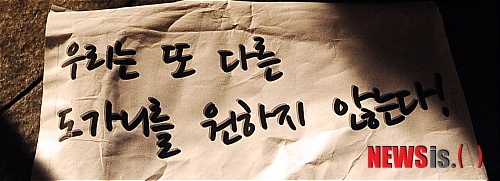 우리는 또 다른
도가니를 원하지 않는다!
NEWSis.( )